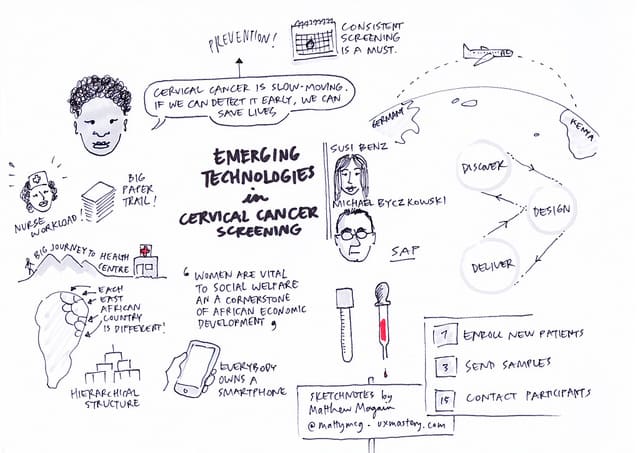 PREVENTION!
CONSISTENT
SCREENING
IS A MUST.
CERVICAL CANCER IS SLOW-MOVING.
IF WE CAN DETECT IT EARLY, WE CAN
SAVE LIVES
GERMANY
KENYA
EMERGING
TECHNOLOGIES
in
CERVICAL CANCER
SCREENING
SUSI BENZ
MICHAEL BYCZKOWSKI
SAP
DISCOVER
DESIGN
DELIVER
NURSE
WORKLOAD!
BIG
PAPER
TRAIL!
BIG JOURNEY TO HEALTH
CENTRE
EACH
EAST
AFRICAN
COUNTRY
IS DIFFERENT!
HIERARCHICAL
STRUCTURE
"WOMEN ARE VITAL
TO SOCIAL WELFARE
AN A CORNERSTONE
OF AFRICAN ECONOMIC
DEVELOPMENT"
EVERYBODY
OWNS A
SMARTPHONE
7 ENROLL NEW PATIENTS
3 SEND SAMPLES
15 CONTACT PARTICIPANTS
SKETCHNOTES by
Matthew Magain
@mattymcg - uxmastery.com